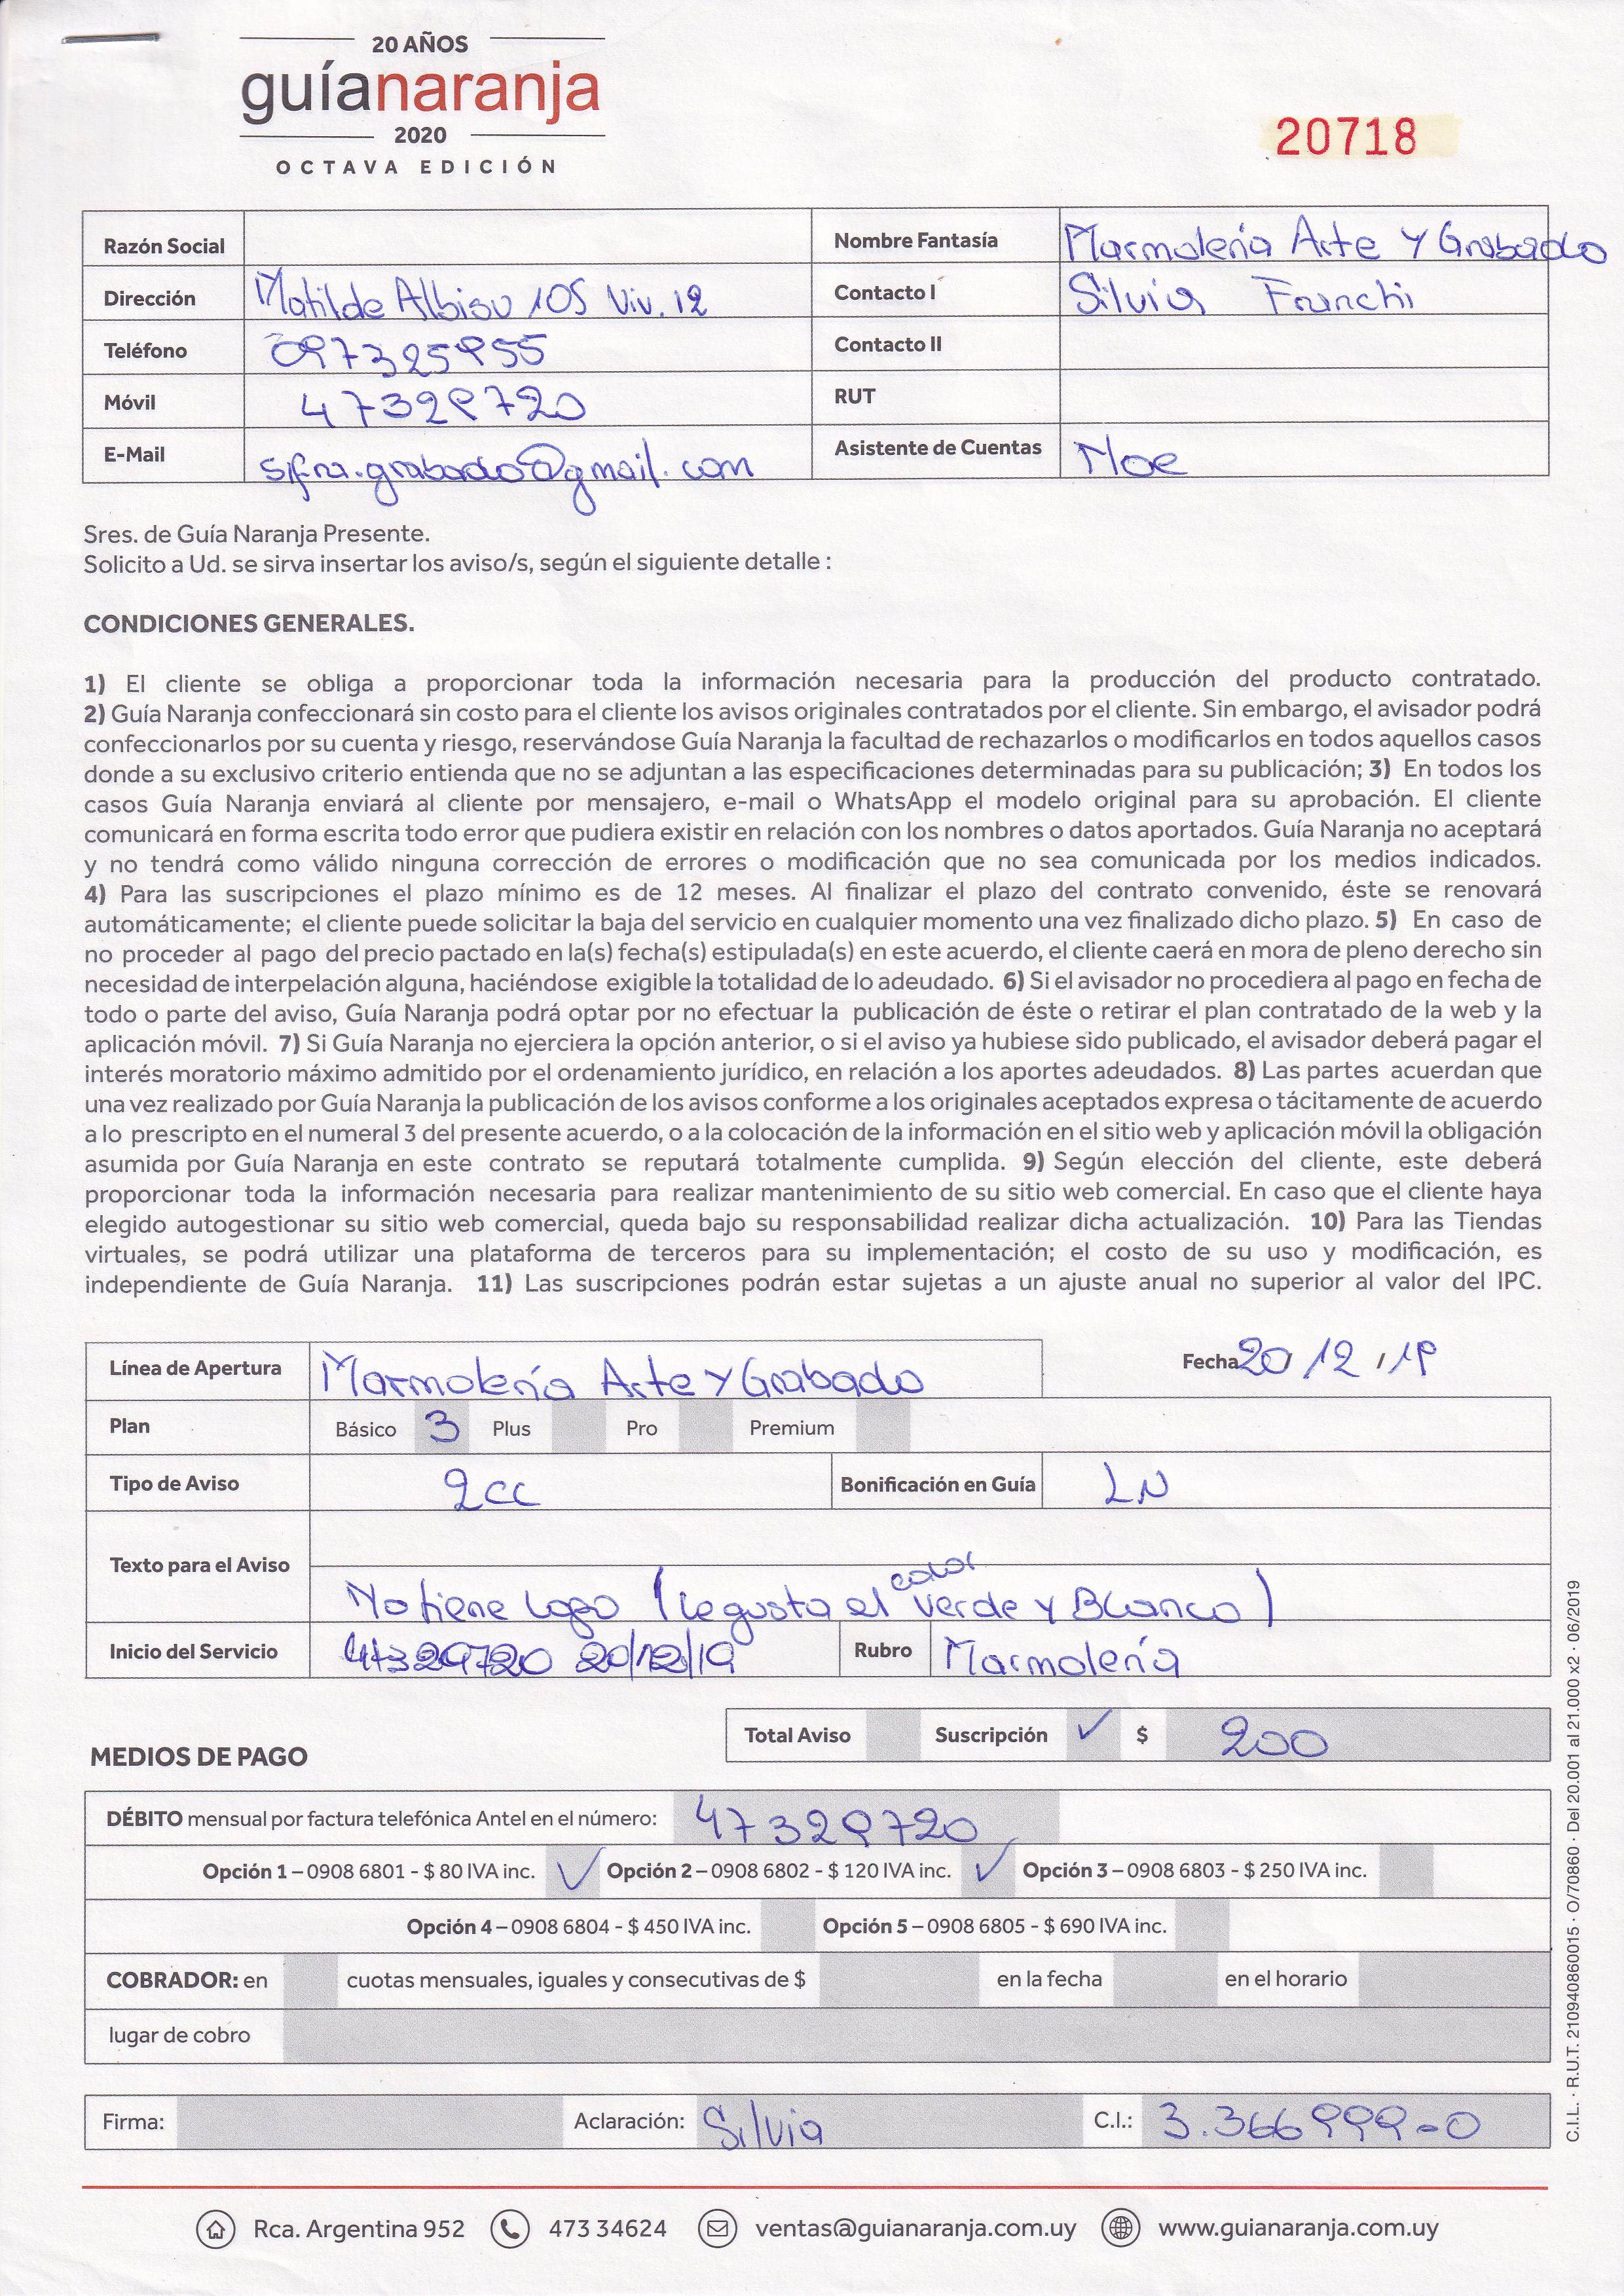 20 AÑOS
guíanaranja
2020
OCTAVA EDICIÓN
20718
Razón Social
Nombre Fantasía Marmolería Arte y Grabado
Dirección Matilde Albisu 105 Viv. 12
Contacto I Silvia Franchi
Teléfono 097325955
Contacto II
Móvil 47329720
RUT
E-Mail sifra.grabado@gmail.com
Asistente de Cuentas Noe
Sres. de Guía Naranja Presente.
Solicito a Ud. se sirva insertar los aviso/s, según el siguiente detalle :
CONDICIONES GENERALES.
1) El cliente se obliga a proporcionar toda la información necesaria para la producción del producto contratado.
2) Guía Naranja confeccionará sin costo para el cliente los avisos originales contratados por el cliente. Sin embargo, el avisador podrá
confeccionarlos por su cuenta y riesgo, reservándose Guía Naranja la facultad de rechazarlos o modificarlos en todos aquellos casos
donde a su exclusivo criterio entienda que no se adjuntan a las especificaciones determinadas para su publicación; 3) En todos los
casos Guía Naranja enviará al cliente por mensajero, e-mail o WhatsApp el modelo original para su aprobación. El cliente
comunicará en forma escrita todo error que pudiera existir en relación con los nombres o datos aportados. Guía Naranja no aceptará
y no tendrá como válido ninguna corrección de errores o modificación que no sea comunicada por los medios indicados.
4) Para las suscripciones el plazo mínimo es de 12 meses. Al finalizar el plazo del contrato convenido, éste se renovará
automáticamente; el cliente puede solicitar la baja del servicio en cualquier momento una vez finalizado dicho plazo. 5) En caso de
no proceder al pago del precio pactado en la(s) fecha(s) estipulada(s) en este acuerdo, el cliente caerá en mora de pleno derecho sin
necesidad de interpelación alguna, haciéndose exigible la totalidad de lo adeudado. 6) Si el avisador no procediera al pago en fecha de
todo o parte del aviso, Guía Naranja podrá optar por no efectuar la publicación de éste o retirar el plan contratado de la web y la
aplicación móvil. 7) Si Guía Naranja no ejerciera la opción anterior, o si el aviso ya hubiese sido publicado, el avisador deberá pagar el
interés moratorio máximo admitido por el ordenamiento jurídico, en relación a los aportes adeudados. 8) Las partes acuerdan que
una vez realizado por Guía Naranja la publicación de los avisos conforme a los originales aceptados expresa o tácitamente de acuerdo
a lo prescripto en el numeral 3 del presente acuerdo, o a la colocación de la información en el sitio web y aplicación móvil la obligación
asumida por Guía Naranja en este contrato se reputará totalmente cumplida. 9) Según elección del cliente, este deberá
proporcionar toda la información necesaria para realizar mantenimiento de su sitio web comercial. En caso que el cliente haya
elegido autogestionar su sitio web comercial, queda bajo su responsabilidad realizar dicha actualización. 10) Para las Tiendas
virtuales, se podrá utilizar una plataforma de terceros para su implementación; el costo de su uso y modificación, es
independiente de Guía Naranja. 11) Las suscripciones podrán estar sujetas a un ajuste anual no superior al valor del IPC.
Línea de Apertura Marmolería Arte y Grabado
Fecha 20 / 12 / 19
Plan Básico 3 Plus Pro Premium
Tipo de Aviso 2cc
Bonificación en Guía LN
Texto para el Aviso
No tiene logo (le gusta el color verde y Blanco)
Inicio del Servicio 47329720 20/12/19
Rubro Marmolería
Total Aviso Suscripción ✓ $ 200
MEDIOS DE PAGO
DÉBITO mensual por factura telefónica Antel en el número: 47329720
Opción 1 – 0908 6801 - $ 80 IVA inc. ✓ Opción 2 – 0908 6802 - $ 120 IVA inc. ✓ Opción 3 – 0908 6803 - $ 250 IVA inc.
Opción 4 – 0908 6804 - $ 450 IVA inc. Opción 5 – 0908 6805 - $ 690 IVA inc.
COBRADOR: en cuotas mensuales, iguales y consecutivas de $ en la fecha en el horario
lugar de cobro
Firma: Aclaración: Silvia C.I.: 3.366999-0
C.I.L. · R.U.T. 210940860015 · O/70860 · Del 20.001 al 21.000 x2 · 06/2019
Rca. Argentina 952 473 34624 ventas@guianaranja.com.uy www.guianaranja.com.uy